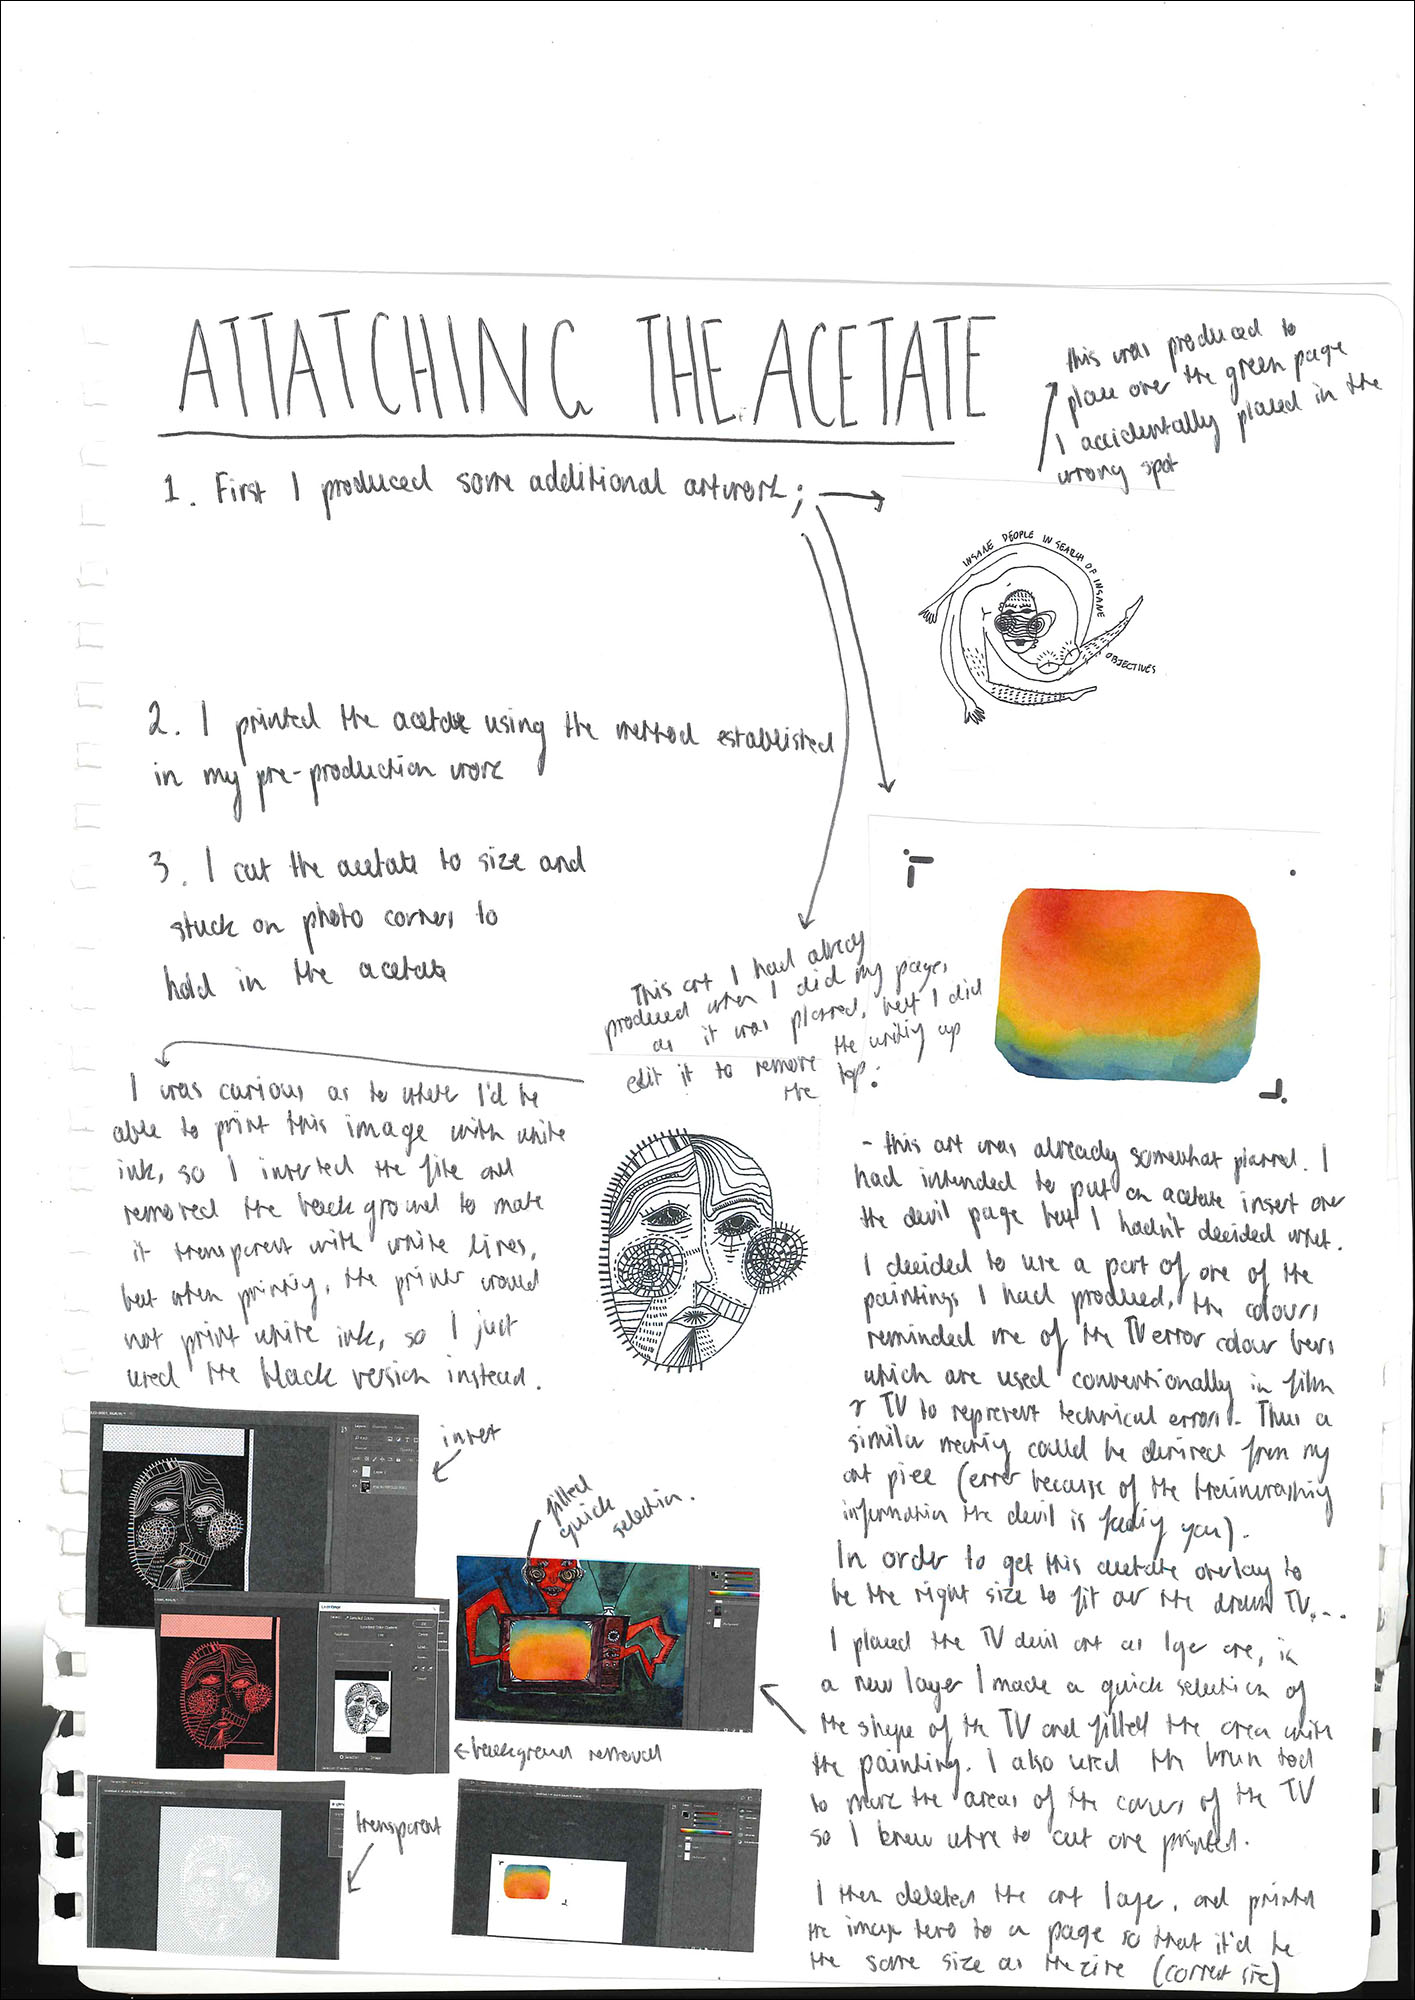 ATTATCHING THE ACETATE
this was produced to
place over the green page
I accidentally placed in the
wrong spot
1. First I produced some additional artwork;
INSANE PEOPLE IN SEARCH OF INSANE
OBJECTIVES
2. I printed the acetate using the method established
in my pre-production work
3. I cut the acetate to size and
stuck on photo corners to
hold in the acetate
This art I had already
produced when I did my page,
as it was planned, but I did
edit it to remove the writing up
the top:
I was curious as to where I'd be
able to print this image with white
ink, so I inverted the file and
removed the background to make
it transparent with white lines,
but when printing, the printer would
not print white ink, so I just
used the black version instead.
- this art was already somewhat planned. I
had intended to put an acetate insert over
the devil page but I hadn't decided what.
I decided to use a part of one of the
paintings I had produced, the colours
reminded me of the TV error colour bars
which are used conventionally in film
& TV to represent technical errors. Thus a
similar meaning could be derived from my
art piece (error because of the brainwashing
information the devil is feeding you).
In order to get this acetate overlay to
be the right size to fit over the drawn TV...
I placed the TV devil art as layer one, in
a new layer I made a quick selection of
the shape of the TV and filled the area with
the painting. I also used the brush tool
to mark the areas of the corners of the TV
so I knew where to cut once printed.
I then deleted the art layer, and printed
the image two to a page so that it'd be
the same size as the zine (correct size)
invert
filled
quick
selection.
background removal
transparent